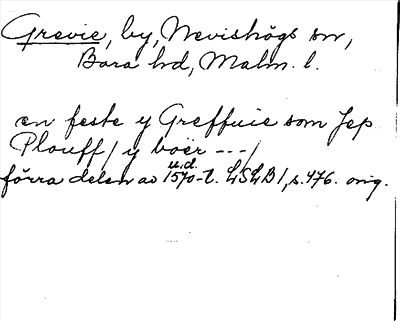 Grevie, by, Nevishögs sn,
Bara hd, Malm. l.
en feste y Greffuie som Jep
Plouff / y boer --- /
u.d.
förra delen av 1570-t. LSLB 1, s. 476. orig.